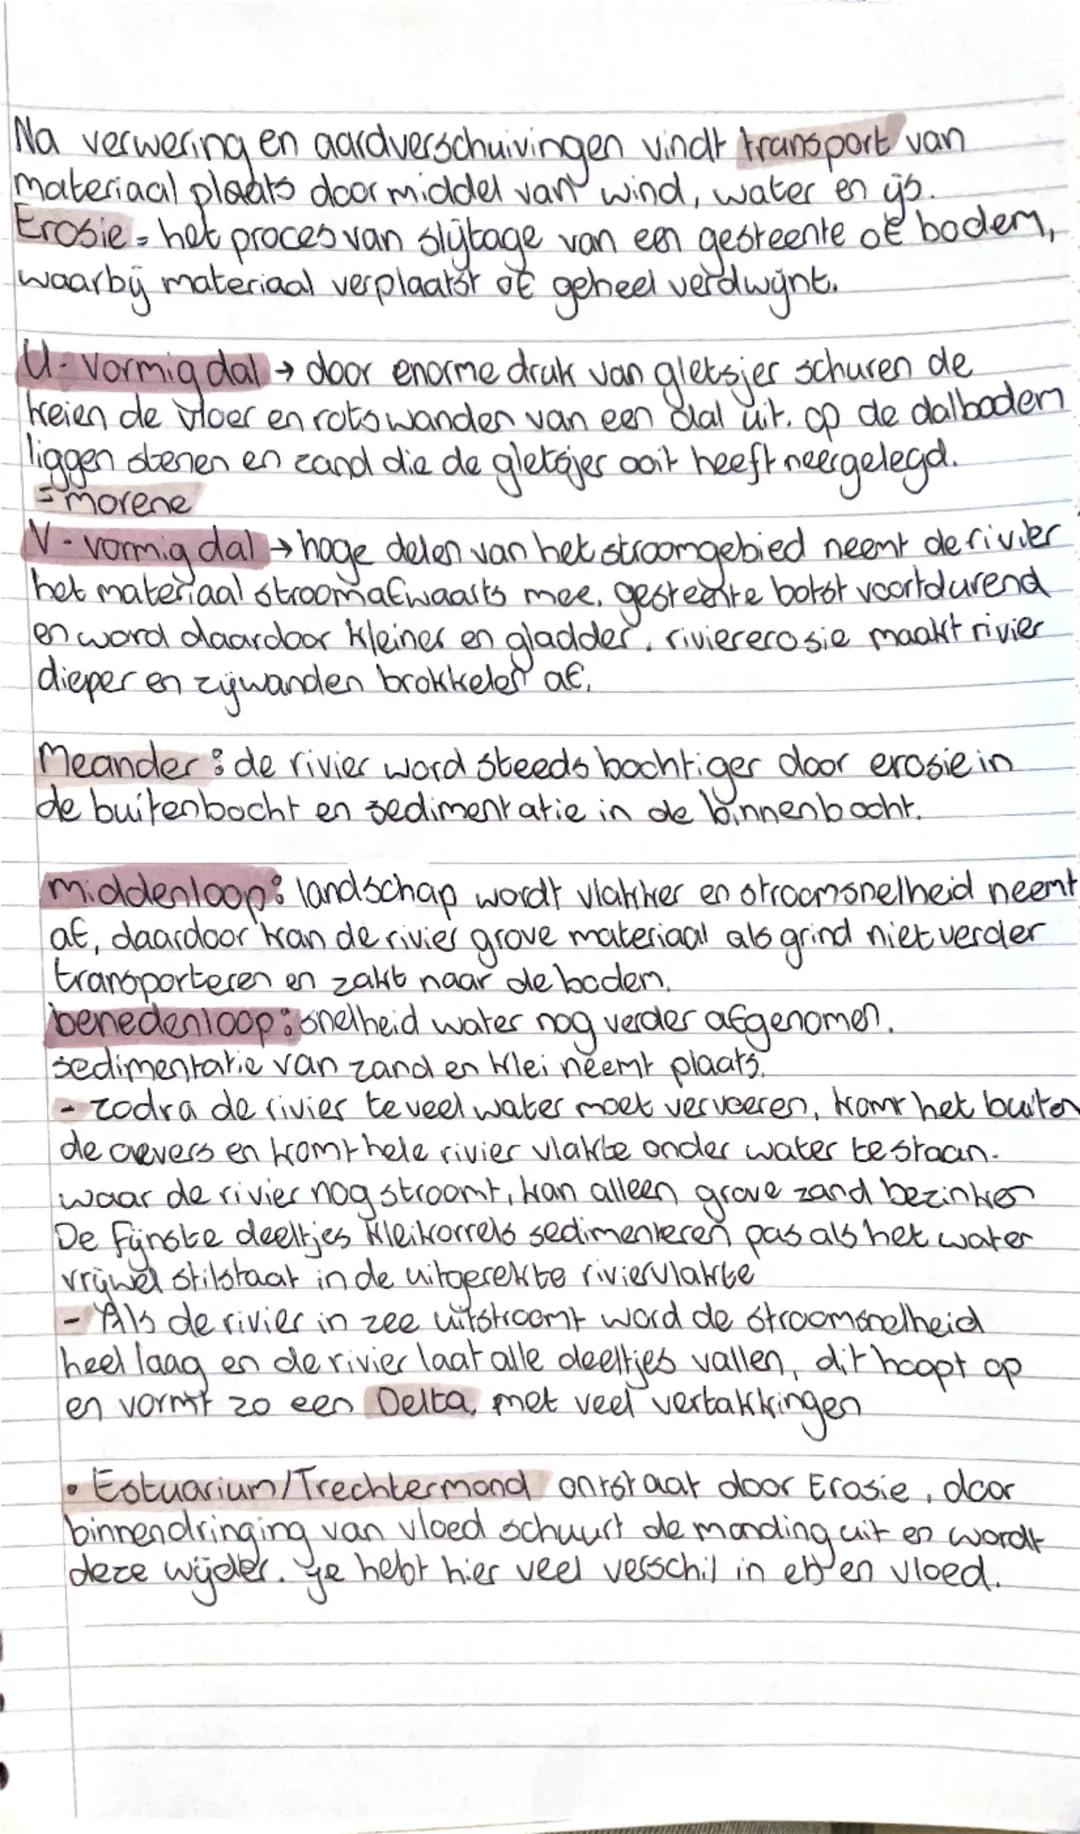 Na verwering en aardverschuivingen vindt transport van
materiaal plaats door middel van wind, water en ijs.
Erosie = het proces van slijtage van een gesteente of bodem,
waarbij materiaal verplaatst of geheel verdwijnt.
U-vormig dal → door enorme druk van gletsjer schuren de
keien de vloer en rotswanden van een dal uit. op de dalbodem
liggen stenen en zand die de gletsjer ooit heeft neergelegd.
= morene
V-vormig dal → hoge delen van het stroomgebied neemt de rivier
het materiaal stroomafwaarts mee. gesteente botst voortdurend
en word daardoor kleiner en gladder. riviererosie maakt rivier
dieper en zijwanden brokkelen af.
Meander : de rivier word steeds bochtiger door erosie in
de buitenbocht en sedimentatie in de binnenbocht.
middenloop: landschap wordt vlakker en stroomsnelheid neemt
af, daardoor kan de rivier grove materiaal als grind niet verder
transporteren en zakt naar de bodem.
benedenloop: snelheid water nog verder afgenomen.
sedimentatie van zand en klei neemt plaats.
- zodra de rivier te veel water moet vervoeren, komt het buiten
de oevers en komt hele rivier vlakte onder water te staan.
waar de rivier nog stroomt, kan alleen grove zand bezinken
De fijnste deeltjes kleikorrels sedimenteren pas als het water
vrijwel stilstaat in de uitgerekte riviervlakte
- Als de rivier in zee uitstroomt word de stroomsnelheid
heel laag en de rivier laat alle deeltjes vallen, dit hoopt op
en vormt zo een Delta, met veel vertakkingen
• Estuarium/Trechtermond ontstaat door Erosie, door
binnendringing van vloed schuurt de monding uit en wordt
deze wijder. je hebt hier veel verschil in eb en vloed.